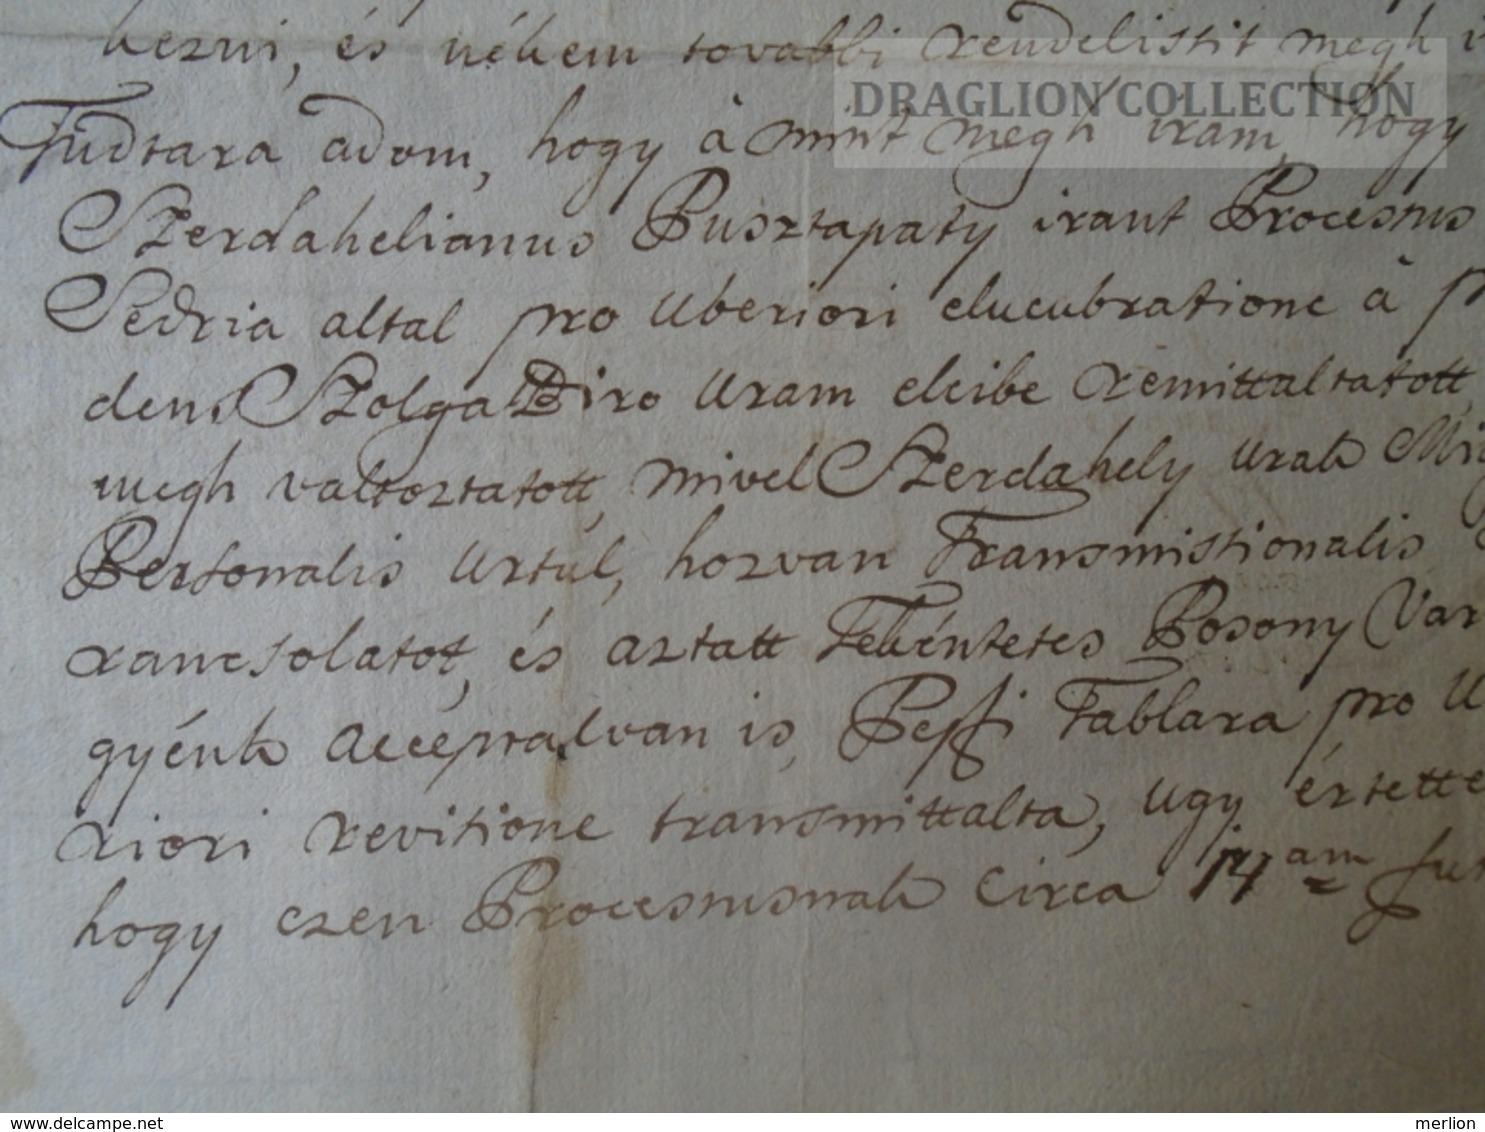 kezni, és nékem tovabbi rendelissit megh
DRAGLION COLLECTION
Tudtara adom, hogy à mint megh iram, hogy
Szerdahelianus Pusztapaty irant Processus
Sedria altal pro uberiori elucubratione à
dens Szolga Biro Uram eleibe remittaltatott,
megh valtoztatott, mivel Szerdahely Urak
Personalis Urtul, hozvan Transmissionalis
rancsolatot, és aztatt Tekéntetes Posony Var
gyénk acceptalvan is, Pesti Tablara pro U
riori revisione transmittalta, ugy értette
hogy ezen Processusnak Circa 14am fut
www.delcampe.net
merlion